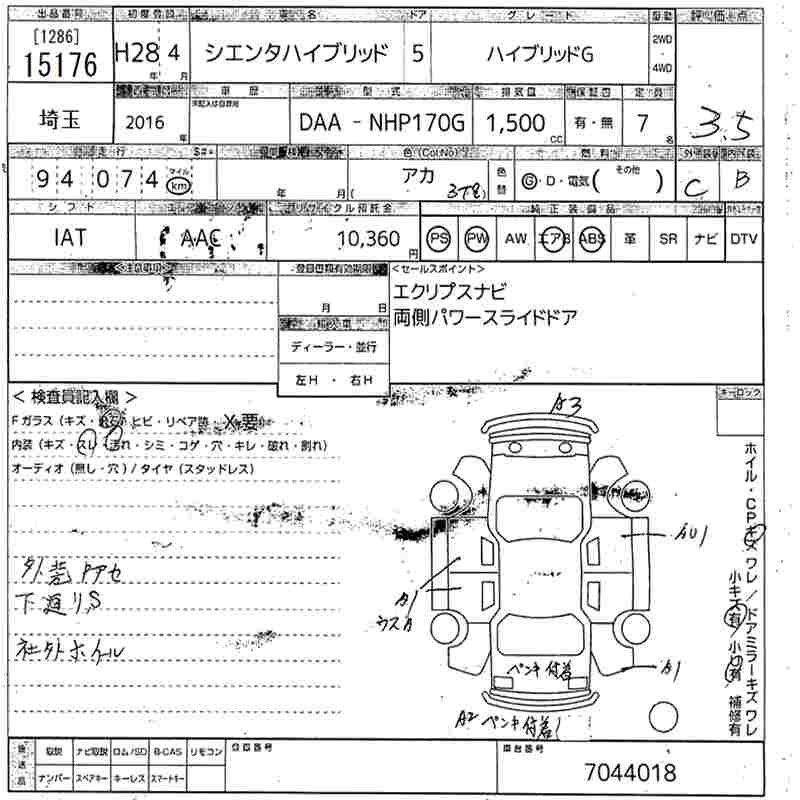 出品番号 初度登録 車名 ドア グレード 駆動 評価点
[1286] 15176 H28年 4月 シエンタハイブリッド 5 ハイブリッドG 2WD 4WD
車歴 型式 排気量 保証書 定員
埼玉 2016年 DAA - NHP170G 1,500cc 有・無 7名 3.5
走行 色(Col.No) 燃料 外装 内装
94074 マイル km 年 月( アカ 3T8) 色替 G・D・電気(その他) C B
シフト リサイクル預託金 純正装備品
IAT AAC 10,360円 PS PW AW エアB ABS 革 SR ナビ DTV
登録書類有効期限 <セールスポイント>
月 日 エクリプスナビ
両側パワースライドドア
輸入車
ディーラー・並行
左H ・ 右H
キーロック
<検査員記入欄>
A3
Fガラス(キズ・ ヒビ・リペア跡 X要
内装(キズ・スレ・汚れ・シミ・コゲ・穴・キレ・破れ・割れ)
オーディオ(無し・穴)/タイヤ(スタッドレス)
AU1
外装
下廻りS
A1
社外ホイル
ペンキ付着
A1
A2 ペンキ付着
ホイル・CPキズ ワレ/ドアミラーキズ ワレ
小キズ有/小凹有 補修有
後送品 取説 ナビ取説 ロム/SD B-CAS リモコン 車台番号
ナンバー スペアキー キーレス スマートキー 7044018